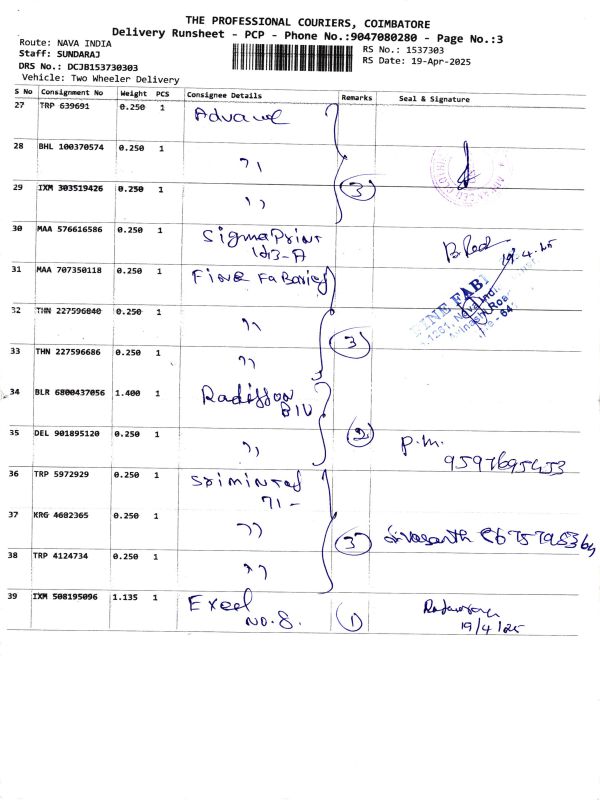 THE PROFESSIONAL COURIERS, COIMBATORE
Delivery Runsheet - PCP - Phone No.:9047080280 - Page No.:3
Route: NAVA INDIA
Staff: SUNDARAJ
DRS No.: DCJB153730303
Vehicle: Two Wheeler Delivery
RS No.: 1537303
RS Date: 19-Apr-2025
S No Consignment No Weight PCS Consignee Details Remarks Seal & Signature
27 TRP 639691 0.250 1
28 BHL 100370574 0.250 1 71
29 IXM 303519426 0.250 1 11 3
30 MAA 576616586 0.250 1 SigmaPrint
163-A
19.4.25
31 MAA 707350118 0.250 1 Fine
FINE FABI
32 THN 227596840 0.250 1 11
33 THN 227596686 0.250 1 11 3
34 BLR 6800437056 1.400 1 Radisson
BLU
35 DEL 901895120 0.250 1 11 2 P.M.
9597695453
36 TRP 5972929 0.250 1
71-
37 KRG 4682365 0.250 1 77 3
38 TRP 4124734 0.250 1 77
39 IXM 508195096 1.135 1 Excel
NO.8. 1
19/4/25